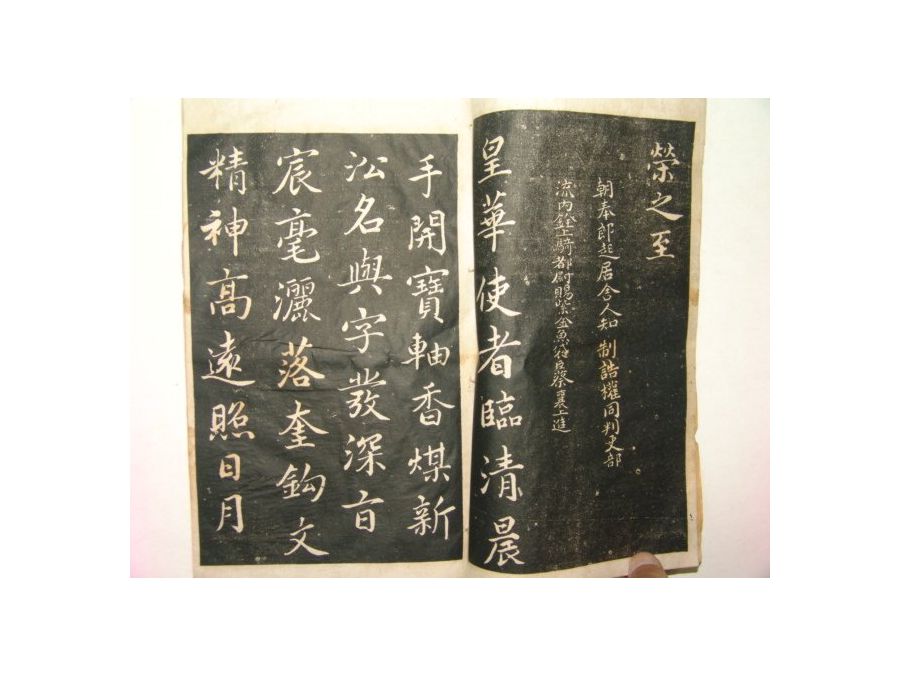 榮之至
朝奉郎起居舍人知制誥權同判吏部
流內銓上騎都尉賜紫金魚袋臣蔡襄上進
皇華使者臨清晨
手開寶軸香煤新
沁名與字發深旨
宸毫灑落奎鈎文
精神高遠照日月